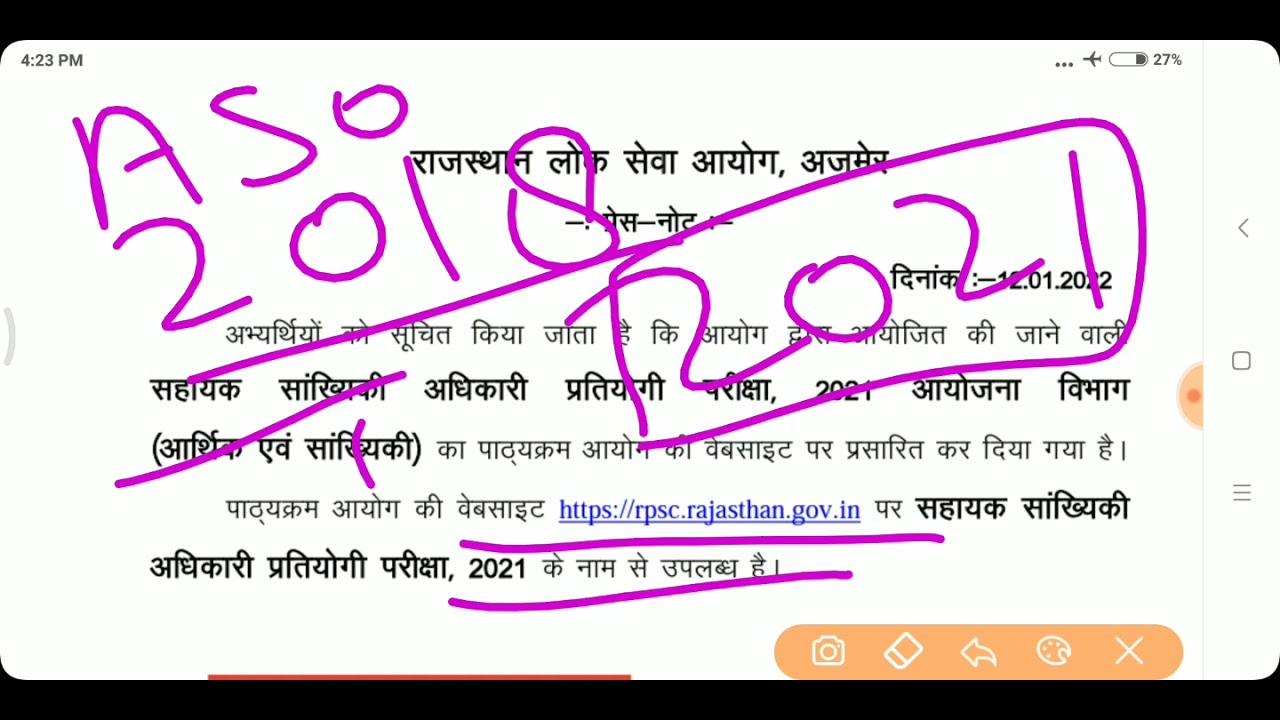 4:23 PM
27%
ASO
2018
2021
राजस्थान लोक सेवा आयोग, अजमेर
–: प्रेस–नोट :–
दिनांक :–12.01.2022
अभ्यर्थियों को सूचित किया जाता है कि आयोग द्वारा आयोजित की जाने वाली
सहायक सांख्यिकी अधिकारी प्रतियोगी परीक्षा, 2021 आयोजना विभाग
(आर्थिक एवं सांख्यिकी) का पाठ्यक्रम आयोग की वेबसाइट पर प्रसारित कर दिया गया है।
पाठ्यक्रम आयोग की वेबसाइट https://rpsc.rajasthan.gov.in पर सहायक सांख्यिकी
अधिकारी प्रतियोगी परीक्षा, 2021 के नाम से उपलब्ध है।